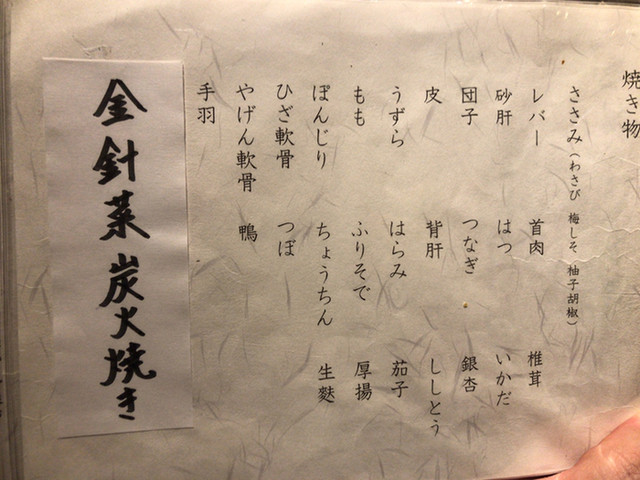 焼き物
ささみ（わさび 梅しそ 柚子胡椒）
レバー 首肉 椎茸
砂肝 はつ いかだ
団子 つなぎ 銀杏
皮 背肝 ししとう
うずら はらみ 茄子
もも ふりそで 厚揚
ぼんじり ちょうちん 生麩
ひざ軟骨 つぼ
やげん軟骨 鴨
手羽
金針菜炭火焼き